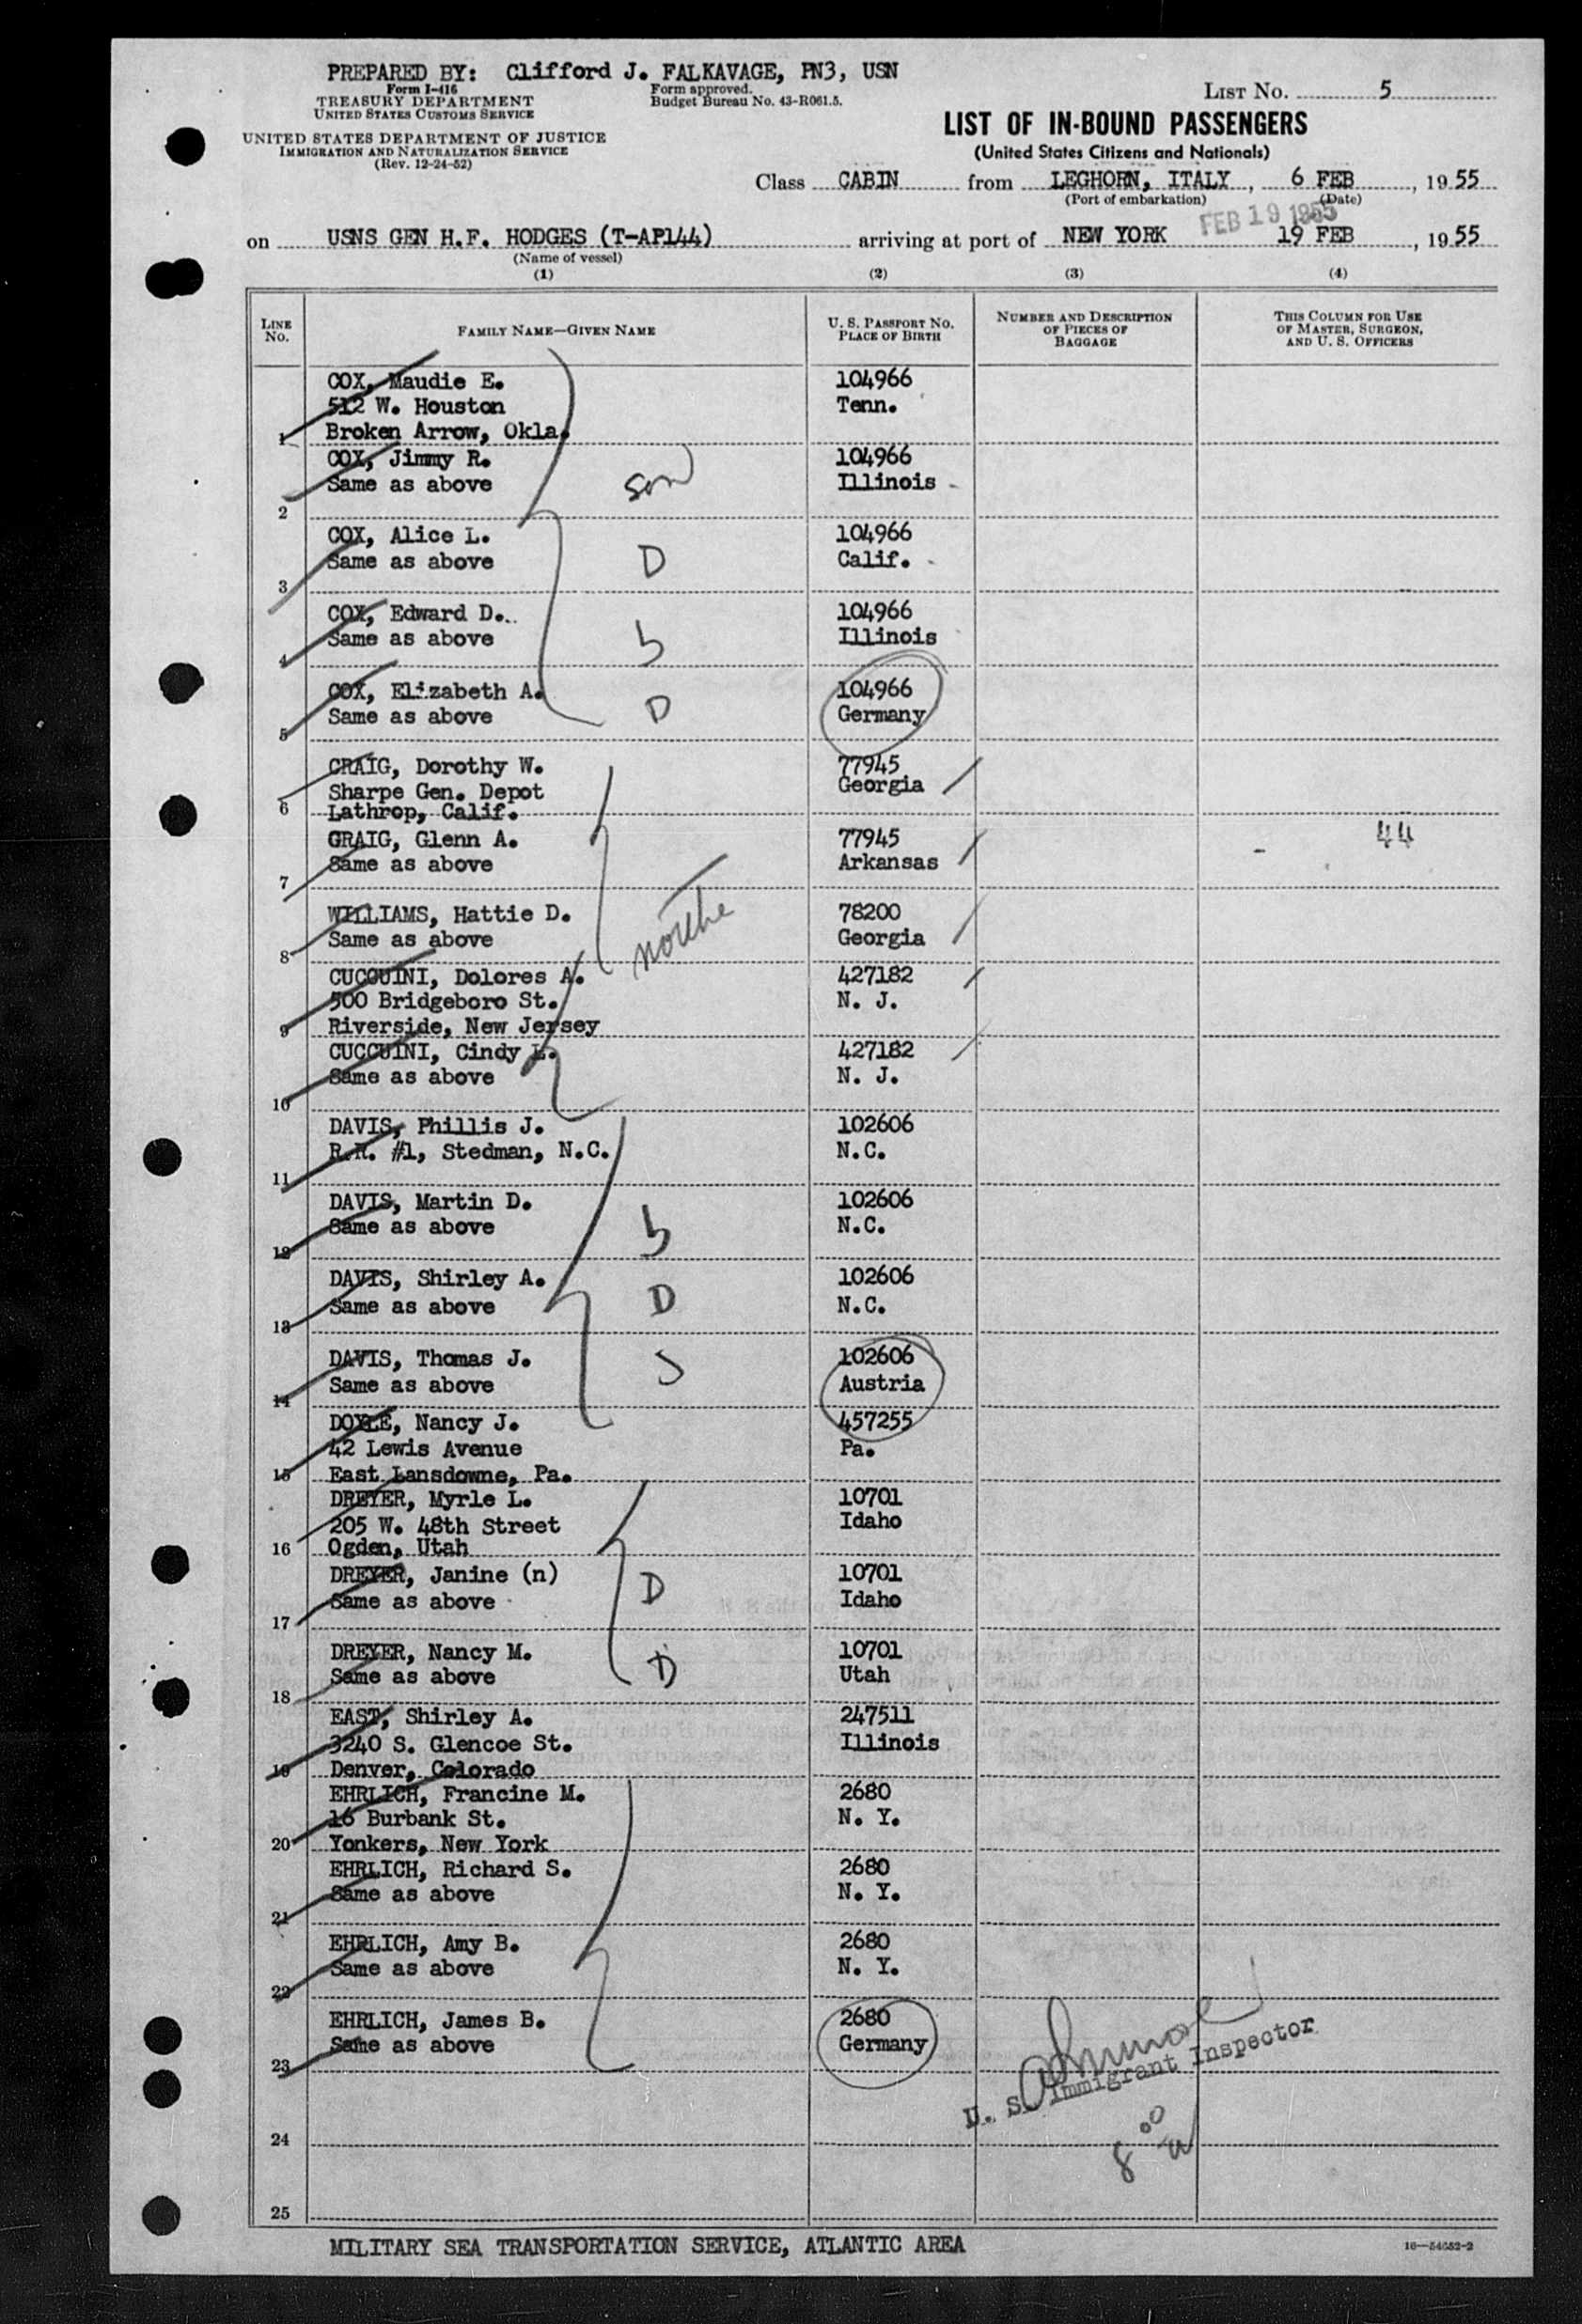 PREPARED BY: Clifford J. FALKAVAGE, PN3, USN
Form I-416
TREASURY DEPARTMENT
UNITED STATES CUSTOMS SERVICE
Form approved.
Budget Bureau No. 43-R061.5.
LIST NO. 5
UNITED STATES DEPARTMENT OF JUSTICE
IMMIGRATION AND NATURALIZATION SERVICE
(Rev. 12-24-52)
LIST OF IN-BOUND PASSENGERS
(United States Citizens and Nationals)
Class CABIN from LEGHORN, ITALY, 6 FEB, 1955
(Port of embarkation) (Date)
FEB 19 1955
on USNS GEN H.F. HODGES (T-AP144) arriving at port of NEW YORK 19 FEB, 1955
(Name of vessel)
(1) (2) (3) (4)
LINE NO. FAMILY NAME—GIVEN NAME U. S. PASSPORT NO. PLACE OF BIRTH NUMBER AND DESCRIPTION OF PIECES OF BAGGAGE THIS COLUMN FOR USE OF MASTER, SURGEON, AND U. S. OFFICERS
COX, Maudie E. 104966
512 W. Houston Tenn.
1 Broken Arrow, Okla.
COX, Jimmy R. 104966
Same as above son Illinois
2
COX, Alice L. 104966
Same as above D Calif.
3
COX, Edward D. 104966
Same as above S Illinois
4
COX, Elizabeth A. 104966
Same as above D Germany
5
CRAIG, Dorothy W. 77945
Sharpe Gen. Depot Georgia
6 Lathrop, Calif.
GRAIG, Glenn A. 77945 44
Same as above Arkansas
7
WILLIAMS, Hattie D. 78200
Same as above mother Georgia
8
CUCGUINI, Dolores A. 427182
500 Bridgeboro St. N. J.
9 Riverside, New Jersey
CUCCUINI, Cindy L. 427182
Same as above N. J.
10
DAVIS, Phillis J. 102606
R.R. #1, Stedman, N.C. N.C.
11
DAVIS, Martin D. 102606
Same as above S N.C.
12
DAVIS, Shirley A. 102606
Same as above D N.C.
13
DAVIS, Thomas J. 102606
Same as above S Austria
14
DOYLE, Nancy J. 457255
42 Lewis Avenue Pa.
15 East Lansdowne, Pa.
DREYER, Myrle L. 10701
205 W. 48th Street Idaho
16 Ogden, Utah
DREYER, Janine (n) 10701
Same as above D Idaho
17
DREYER, Nancy M. 10701
Same as above D Utah
18
EAST, Shirley A. 247511
3240 S. Glencoe St. Illinois
19 Denver, Colorado
EHRLICH, Francine M. 2680
16 Burbank St. N. Y.
20 Yonkers, New York
EHRLICH, Richard S. 2680
Same as above N. Y.
21
EHRLICH, Amy B. 2680
Same as above N. Y.
22
EHRLICH, James B. 2680
Same as above Germany
23
U. S. Immigrant Inspector
8 00
24
25
MILITARY SEA TRANSPORTATION SERVICE, ATLANTIC AREA
16—54652-2